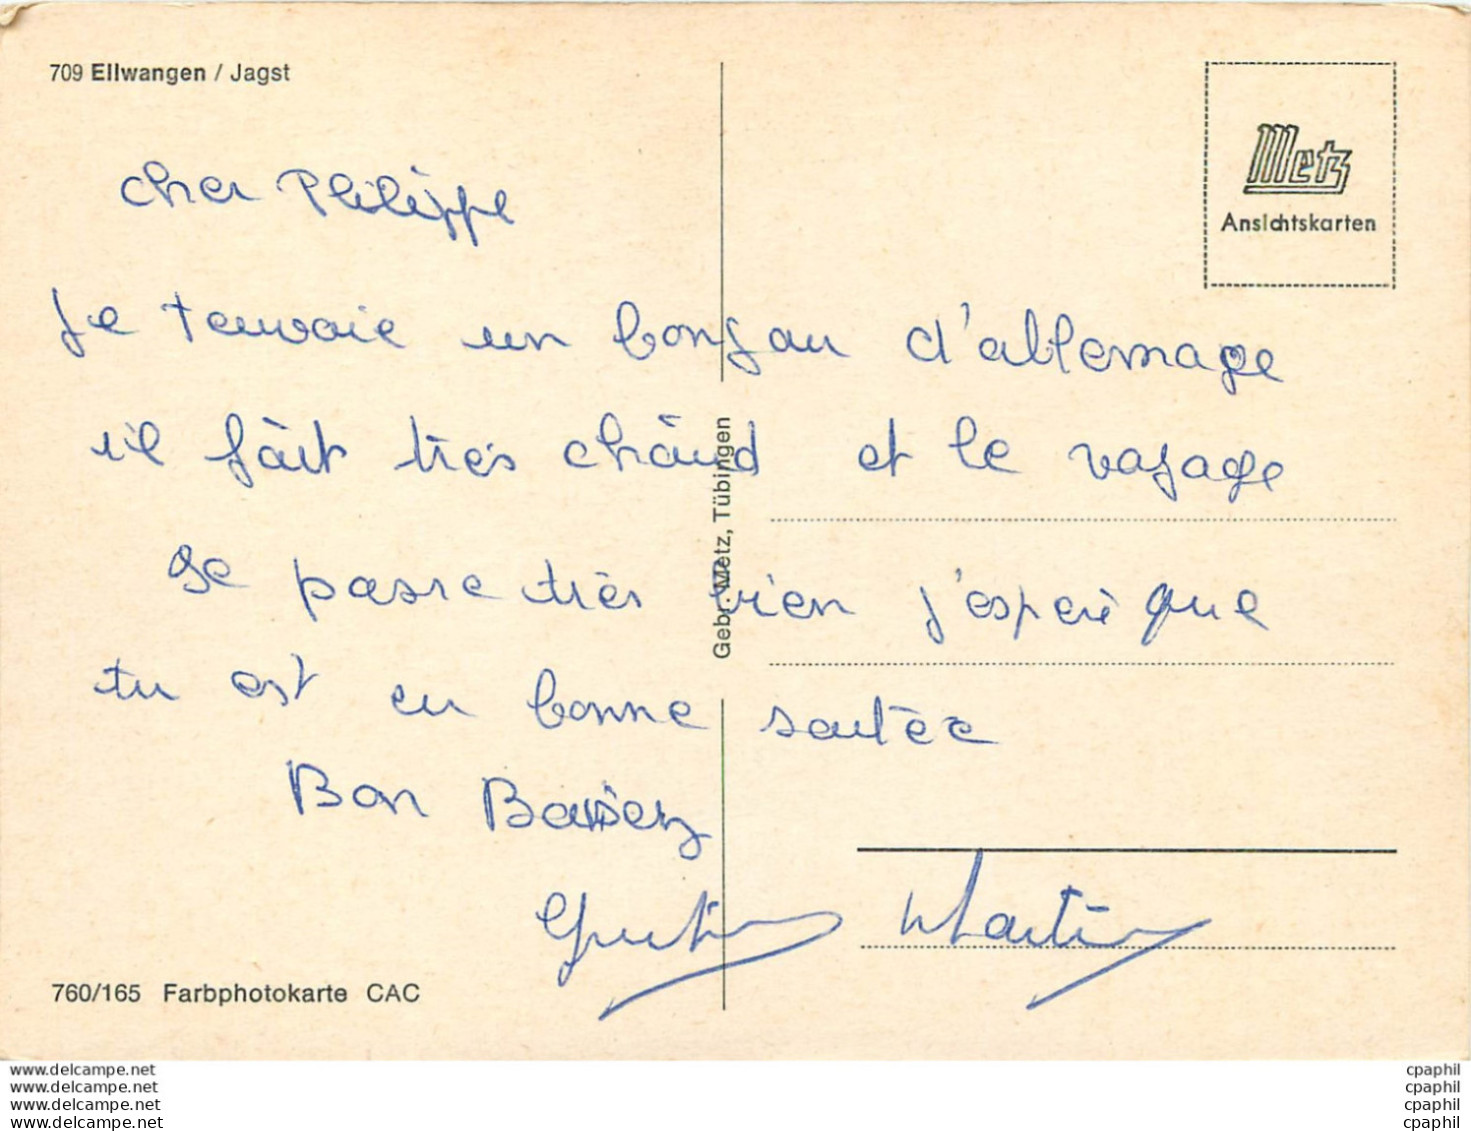 709 Ellwangen / Jagst
Metz
Ansichtskarten
cher Philippe
Je t'envoie un bonjou d'allemage
il fait très chaud et le voyage
se passe très bien j'espere que
tu est en bonne santée
Bon Baisers
Martin
Gebr. Metz, Tübingen
760/165 Farbphotokarte CAC
www.delcampe.net
www.delcampe.net
www.delcampe.net
www.delcampe.net
cpaphil
cpaphil
cpaphil
cpaphil